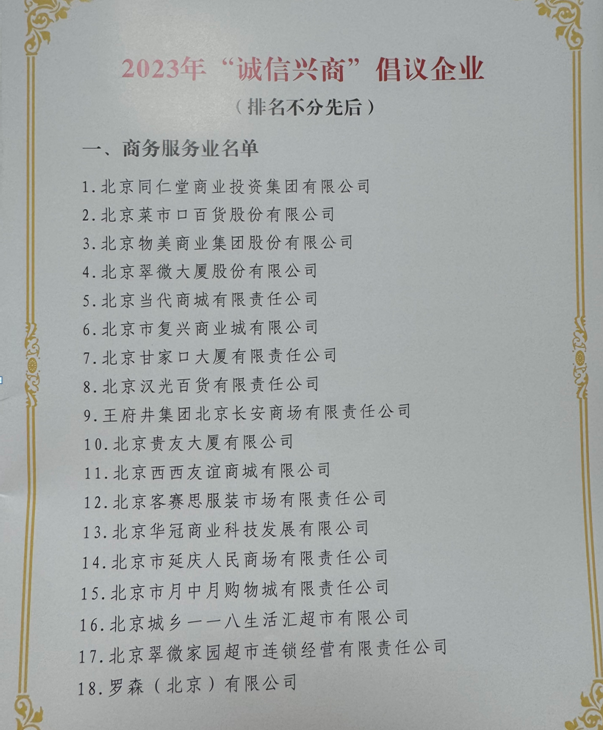 2023年“诚信兴商”倡议企业
（排名不分先后）
一、商务服务业名单
1.北京同仁堂商业投资集团有限公司
2.北京菜市口百货股份有限公司
3.北京物美商业集团股份有限公司
4.北京翠微大厦股份有限公司
5.北京当代商城有限责任公司
6.北京市复兴商业城有限公司
7.北京甘家口大厦有限责任公司
8.北京汉光百货有限责任公司
9.王府井集团北京长安商场有限责任公司
10.北京贵友大厦有限公司
11.北京西西友谊商城有限公司
12.北京客赛思服装市场有限责任公司
13.北京华冠商业科技发展有限公司
14.北京市延庆人民商场有限责任公司
15.北京市月中月购物城有限责任公司
16.北京城乡一一八生活汇超市有限公司
17.北京翠微家园超市连锁经营有限责任公司
18.罗森（北京）有限公司